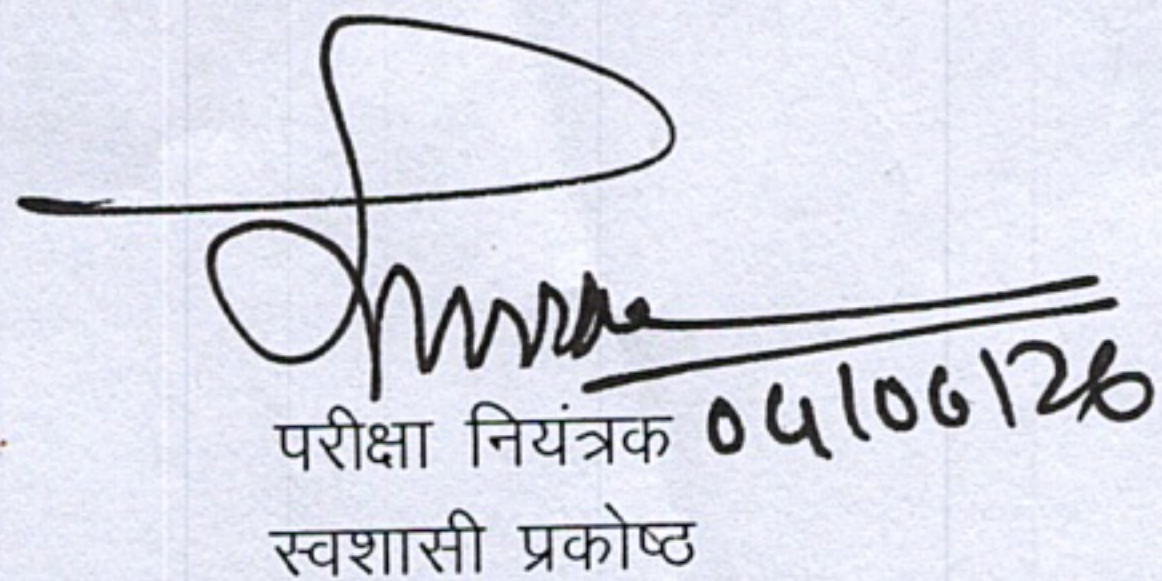 परीक्षा नियंत्रक 04/06/26
स्वशासी प्रकोष्ठ